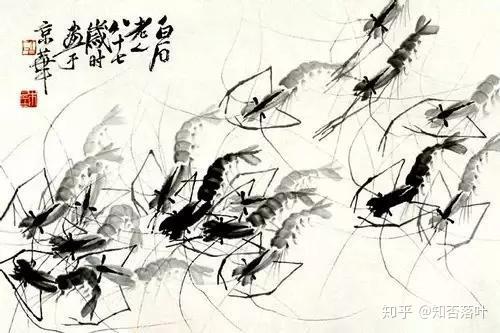 白石
老人
八十七
歲时
畫于
京華
知乎 @知否落叶